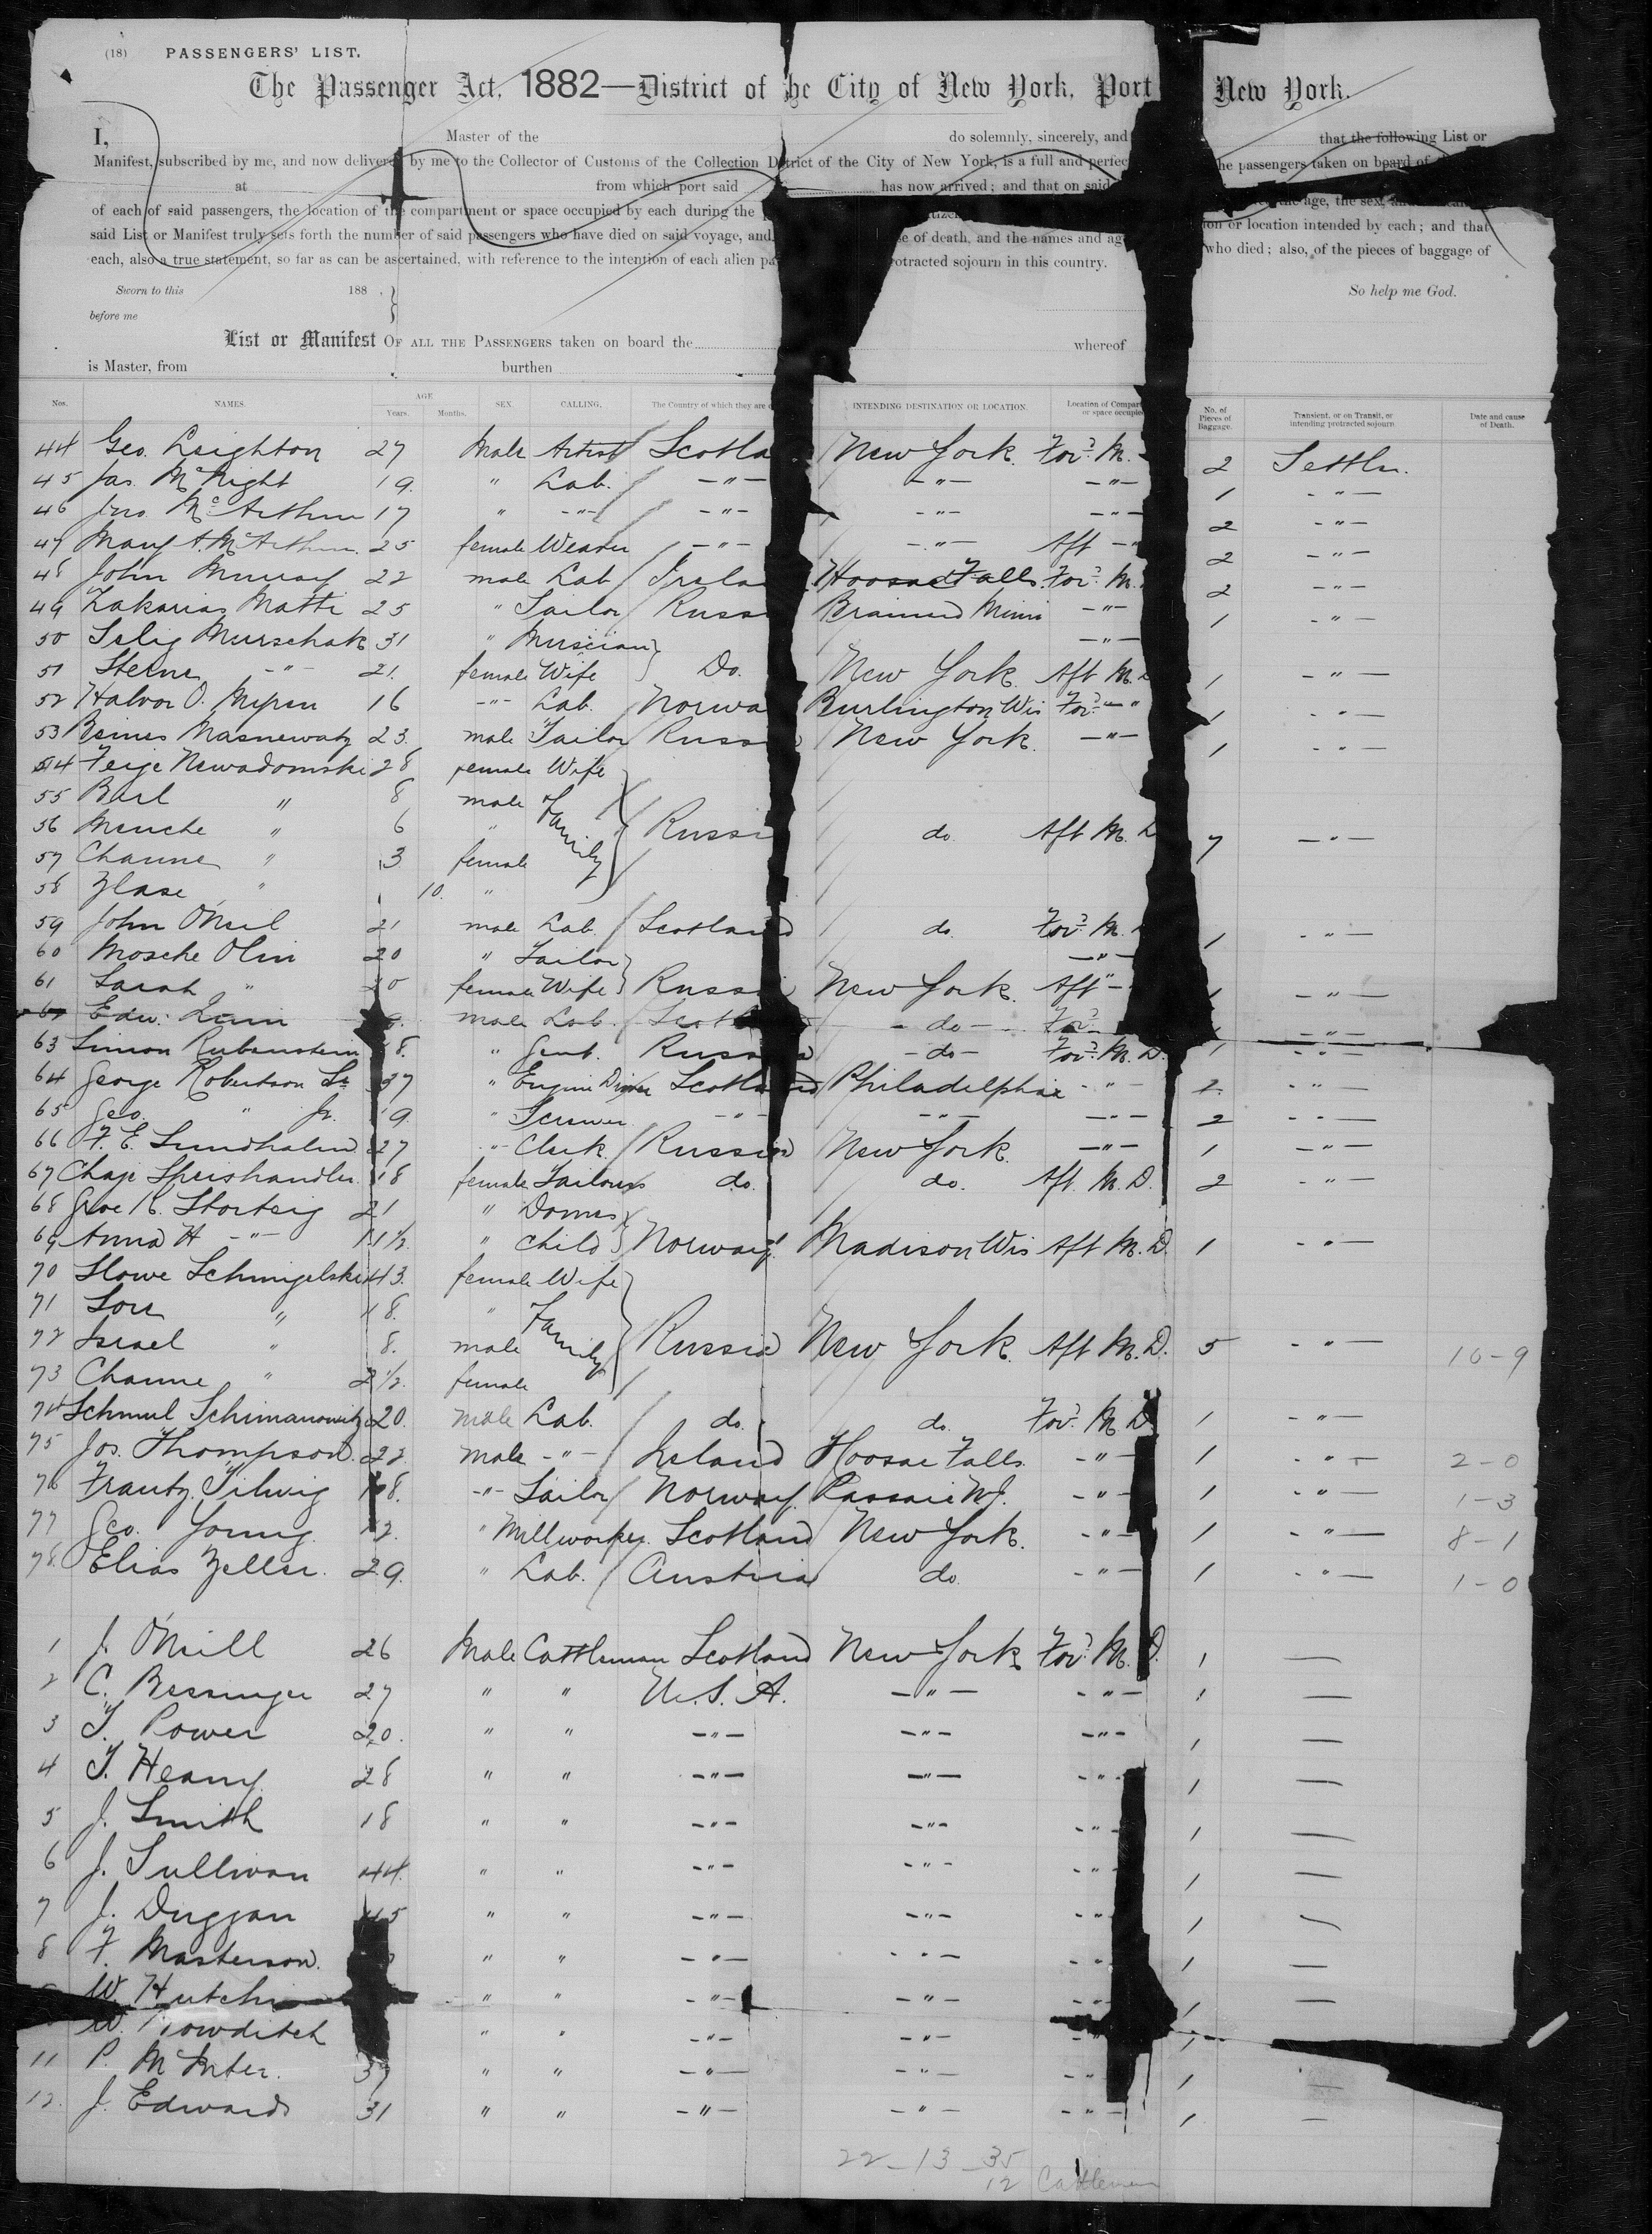 (18) PASSENGERS' LIST.
The Passenger Act, 1882—District of the City of New York, Port New York.
I, Master of the do solemnly, sincerely, and that the following List or
Manifest, subscribed by me, and now delivered by me to the Collector of Customs of the Collection District of the City of New York, is a full and perfect the passengers taken on board of
at from which port said has now arrived; and that on said
of each of said passengers, the location of the compartment or space occupied by each during the the age, the sex, and
said List or Manifest truly sets forth the number of said passengers who have died on said voyage, and se of death, and the names and ag who died; also, of the pieces of baggage of
each, also a true statement, so far as can be ascertained, with reference to the intention of each alien pa rotracted sojourn in this country.
Sworn to this 188 , So help me God.
before me
List or Manifest OF ALL THE PASSENGERS taken on board the whereof
is Master, from burthen
Nos. NAMES. AGE Years. Months. SEX. CALLING. The Country of which they are c INTENDING DESTINATION OR LOCATION. Location of Compart or space occupied No. of Pieces of Baggage. Transient, or on Transit, or intending protracted sojourn Date and cause of Death.
44 Geo. Leighton 27 Male Artist Scotla New York. For'd M. 2 Settler.
45 Jas. McNight 19. " Lab. -"- -"- -"- 1 -"-
46 Jno. McArthur 17 " -"- -"- -"- -"- 2 -"-
47 Mary A. McArthur. 25 female Weaver -"- -"- Aft -"- 2 -"-
48 John Murray 22 male Lab Irela Hoosac Falls For'd M. 2 -"-
49 Zakarias Matti 25 " Tailor Russ Brainerd Minn -"- 1 -"-
50 Selig Murschak 31 " Muscian -"-
51 Sterne -"- 21. female Wife Do. New York. Aft M. 1 -"-
52 Halvor O. Myren 16 -"- Lab. Norwa Burlington Wis For'd -" 1 -"-
53 23. male Tailor Russ New York. -"- 1 -"-
54 Feige Newadomski 28 female Wife
55 Berl " 8 male Family
56 Menche " 6 " Russi do. Aft M. 7 -"-
57 Channe " 3 female
58 Zlase " 10. "
59 John O'Neil 21 male Lab. Scotland do. For'd M. 1 -"-
60 Mosche Olin 20 " Tailor -"-
61 Sarah " 20 female Wife Russi New York. Aft " - 1 -"-
Edw. male Lab. Scotl -do- For'd -"-
63 Simon Rubenstein 18. " Gent. Russia -do- For'd M. D. 1 -"-
64 George Robertson Sr. 37 " Engine Driver Scotland Philadelphia -"- 2 -"-
65 Geo. " Jr. 19. " -"- -"- -"- 2 -"-
66 F. E. Sundholm 27 -"- Clerk. Russia New York. -"- 1 -"-
67 Chaje Speishandler 18 female Tailoress do. do. Aft. M. D. 2 -"-
68 21 " Domes
69 Anna H -"- 1 1/2. " Child Norway Madison Wis Aft M. D. 1 -"-
70 Slowe Schmigelski 43. female Wife
71 " 18. " Family
72 Israel " 8. male Russia New York. Aft M. D. 5 -"- 10-9
73 Channe " 2 1/2. female
74 Schmul Schimanowitz 20. male Lab. do. do. For'd M. D. 1 -"-
75 Jos. Thompson. 22. male -"- Ireland Hoosac Falls. -"- 1 -"- 2-0
76 Frantz 18. -"- Tailor Norway. Passaic N.J. -"- 1 -"- 1-3
77 Geo. Young 12. " Millworker. Scotland New York. -"- 1 -"- 8-1
78. Elias Zeller. 29. " Lab. Austria do. -"- 1 -"- 1-0
1 J. O'Neill 26 Male Cattleman Scotland New York For'd M. D. 1 —
2 C. Bessinger 27 " " U. S. A. -"- -"- 1 —
3 T. Power 20. " " -"- -"- -"- 1 —
4 T. Heany 28 " " -"- -"- -"- 1 —
5 J. Smith 18 " " -"- -"- -"- 1 —
6 J. Sullivan 44. " " -"- -"- -"- 1 —
7 J. Duggan 45 " " -"- -"- -"- 1 —
8 F. Masterson. " " -"- -"- -" 1 —
W. Hutchi " " -"- -"- -" 1 —
W. Bowditch " " -"- -"- -" 1
11 P. 37 " " -"- -"- -" 1 —
12. J. Edwards 31 " " -"- -"- -"- 1 —
22-13-35
12 Cattlemen